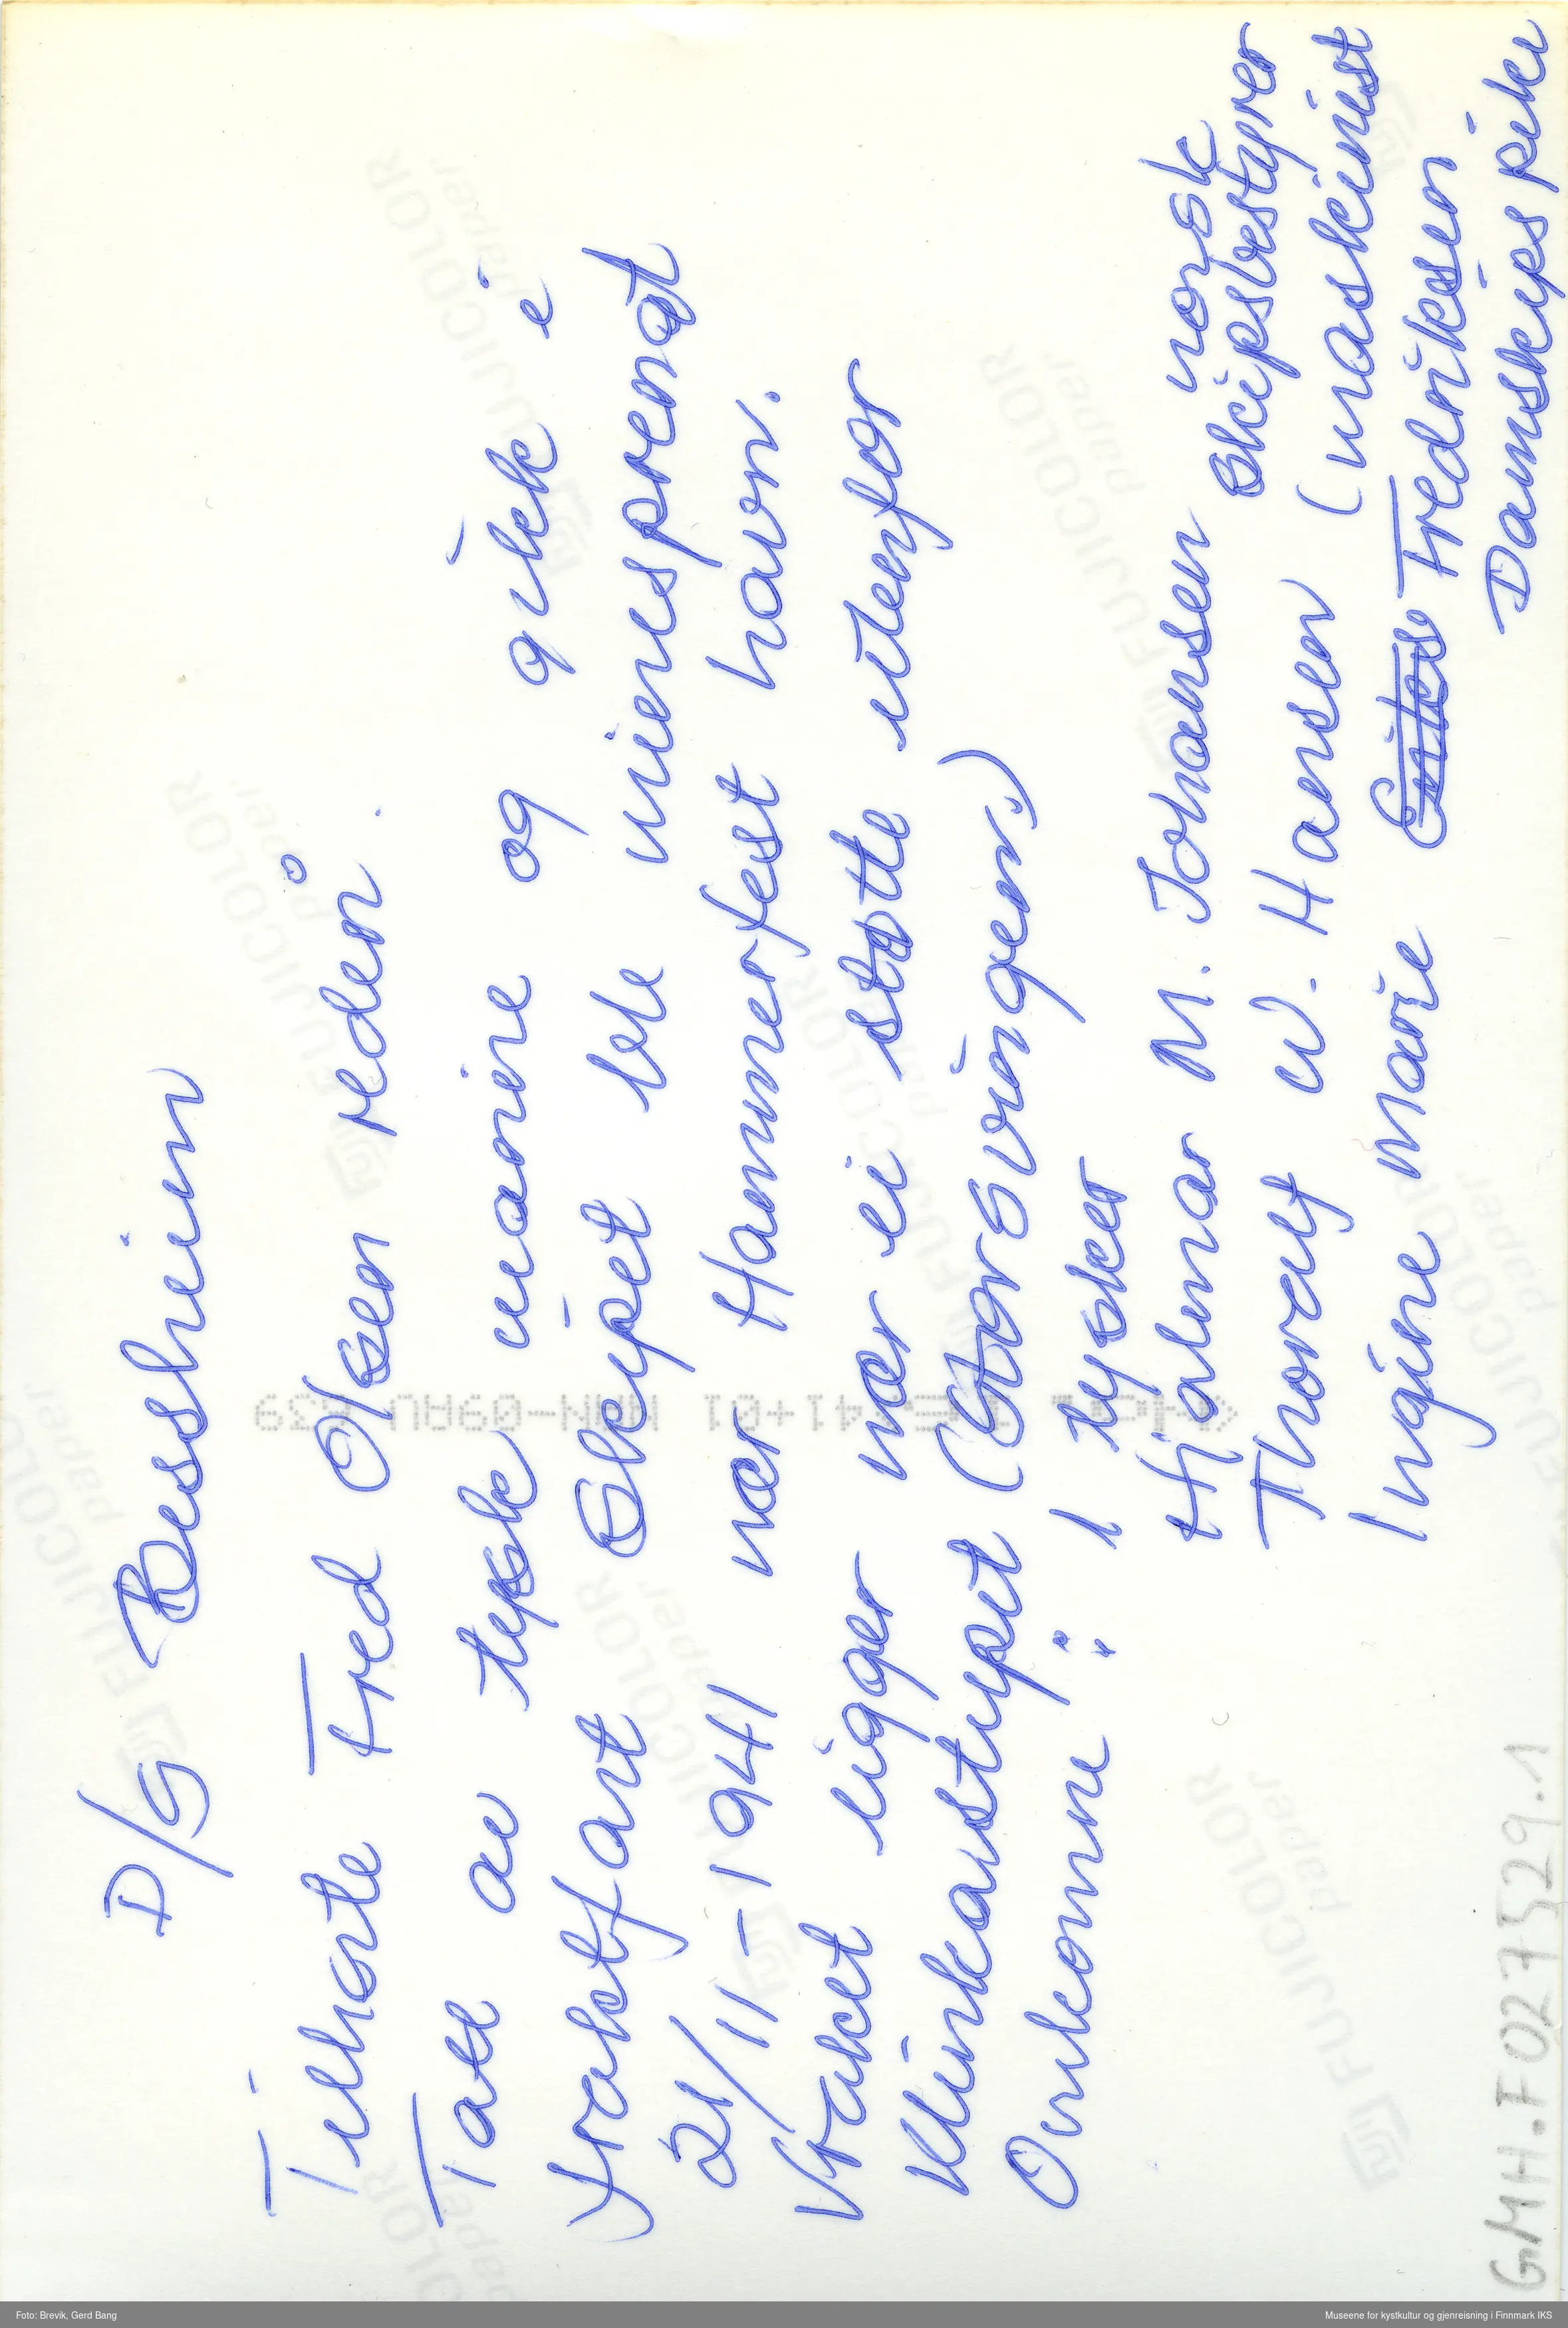 D/S Bessheim
Tilhørte Fred Olsen rederi.
Tatt av tyske marine og gikk i
fraktfart Skipet ble minesprengt
21/11-1941 nær Hammerfest havn.
Vraket ligger nær ei støtte utenfor
Klinkarstupet (Storsvingen.)
Omkomne: 1 tysker
Hjalmar M. Johansen norsk
skipsbestyrer
Thoralf W. Hansen (maskinist
Ingine Marie Fredriksen
Damskipspike
GMH.F027529.1
FUJICOLOR
paper.
Foto: Brevik, Gerd Bang
Museene for kystkultur og gjenreisning i Finnmark IKS